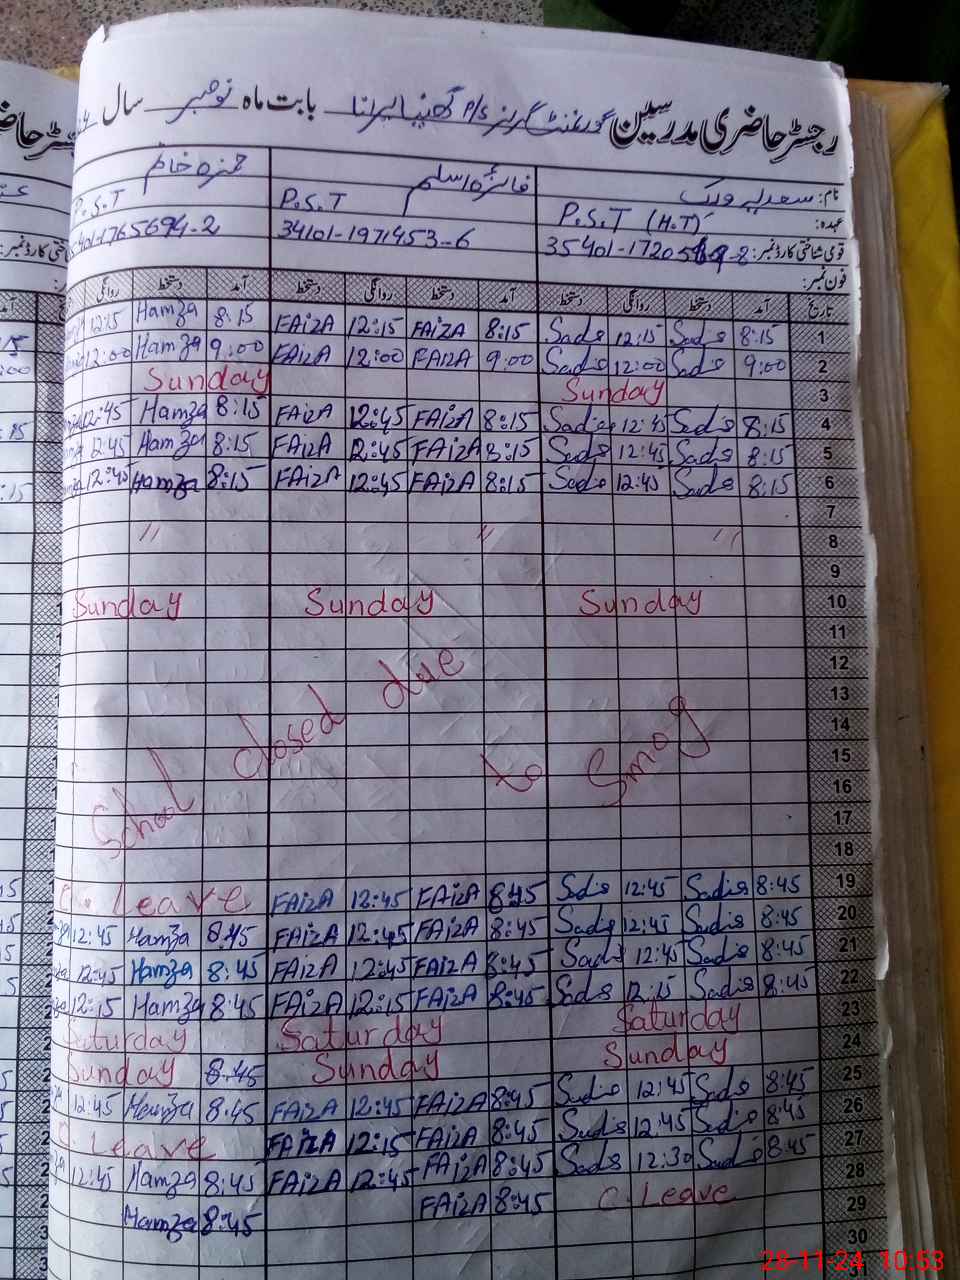 رجسٹر حاضری مدرسین گورنمنٹ گرلز P/S بابت ماہ نومبر سال
نام: سعدیہ ورک فائزہ اسلم حمزہ خانم
عہدہ: P.S.T (H.T) P.S.T P.S.T
قومی شناختی کارڈ نمبر: 34101-1971453-6 5401-1765694-2
فون نمبر:
تاریخ آمد دستخط روانگی دستخط آمد دستخط روانگی دستخط آمد دستخط روانگی
12:15 Hamza 8:15 FAizA 12:15 FAizA 8:15 Sadia 12:15 Sadia 8:15 1
12:00 Hamza 9:00 FAizA 12:00 FAizA 9:00 Sadia 12:00 Sadia 9:00 2
Sunday Sunday 3
12:45 Hamza 8:15 FAizA 12:45 FAizA 8:15 Sadia 12:45 Sadia 8:15 4
12:45 Hamza 8:15 FAizA 12:45 FAizA 8:15 Sadia 12:45 Sadia 8:15 5
12:45 Hamza 8:15 FAizA 12:45 FAizA 8:15 Sadia 12:45 Sadia 8:15 6
7
" " " 8
9
Sunday Sunday Sunday 10
11
12
13
14
15
16
17
18
School closed due to Smog
C. Leave FAizA 12:45 FAizA 8:45 Sadia 12:45 Sadia 8:45 19
12:45 Hamza 8:45 FAizA 12:45 FAizA 8:45 Sadia 12:45 Sadia 8:45 20
12:45 Hamza 8:45 FAizA 12:45 FAizA 8:45 Sadia 12:45 Sadia 8:45 21
12:15 Hamza 8:45 FAizA 12:15 FAizA 8:45 Sadia 12:15 Sadia 8:45 22
Saturday Saturday Saturday 23
Sunday 8:45 Sunday Sunday 24
12:45 Hamza 8:45 FAizA 12:45 FAizA 8:45 Sadia 12:45 Sadia 8:45 25
C. Leave FAizA 12:15 FAizA 8:45 Sadia 12:45 Sadia 8:45 26
12:45 Hamza 8:45 FAizA 12:45 FAizA 8:45 Sadia 12:30 Sadia 8:45 27
Hamza 8:45 FAizA 8:45 C. Leave 28
29
30
28-11-24 10:53